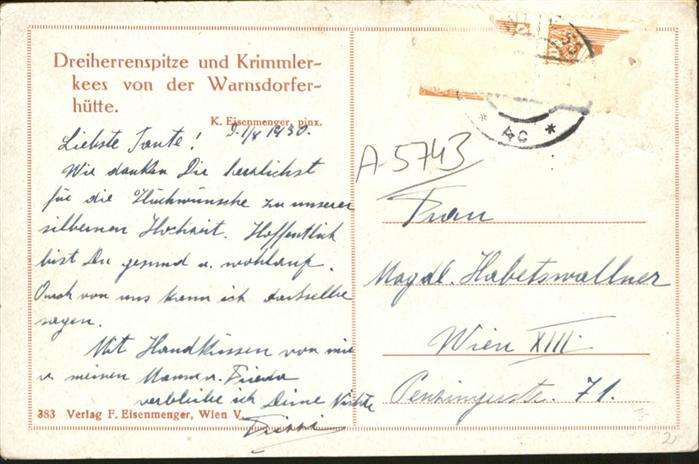 Dreiherrenspitze und Krimmler-
kees von der Warnsdorfer-
hütte.
K. Eisenmenger, pinx.
Liebste Tante!
1930.
Wir danken Dir herzlichst
für die Glückwünsche zu unserer
silbernen Hochzeit. Hoffentlich
bist Du gesund u. wohlauf.
Auch von uns kann ich dasselbe
sagen.
Mit Handküssen von mir
u. meinen Mama u. Frieda
verbleibe ich Deine Nichte
383 Verlag F. Eisenmenger, Wien V.
* 4c *
A-5743
Frau
Magdl. Habetswallner
Wien XIII.
Penzingerstr. 71.